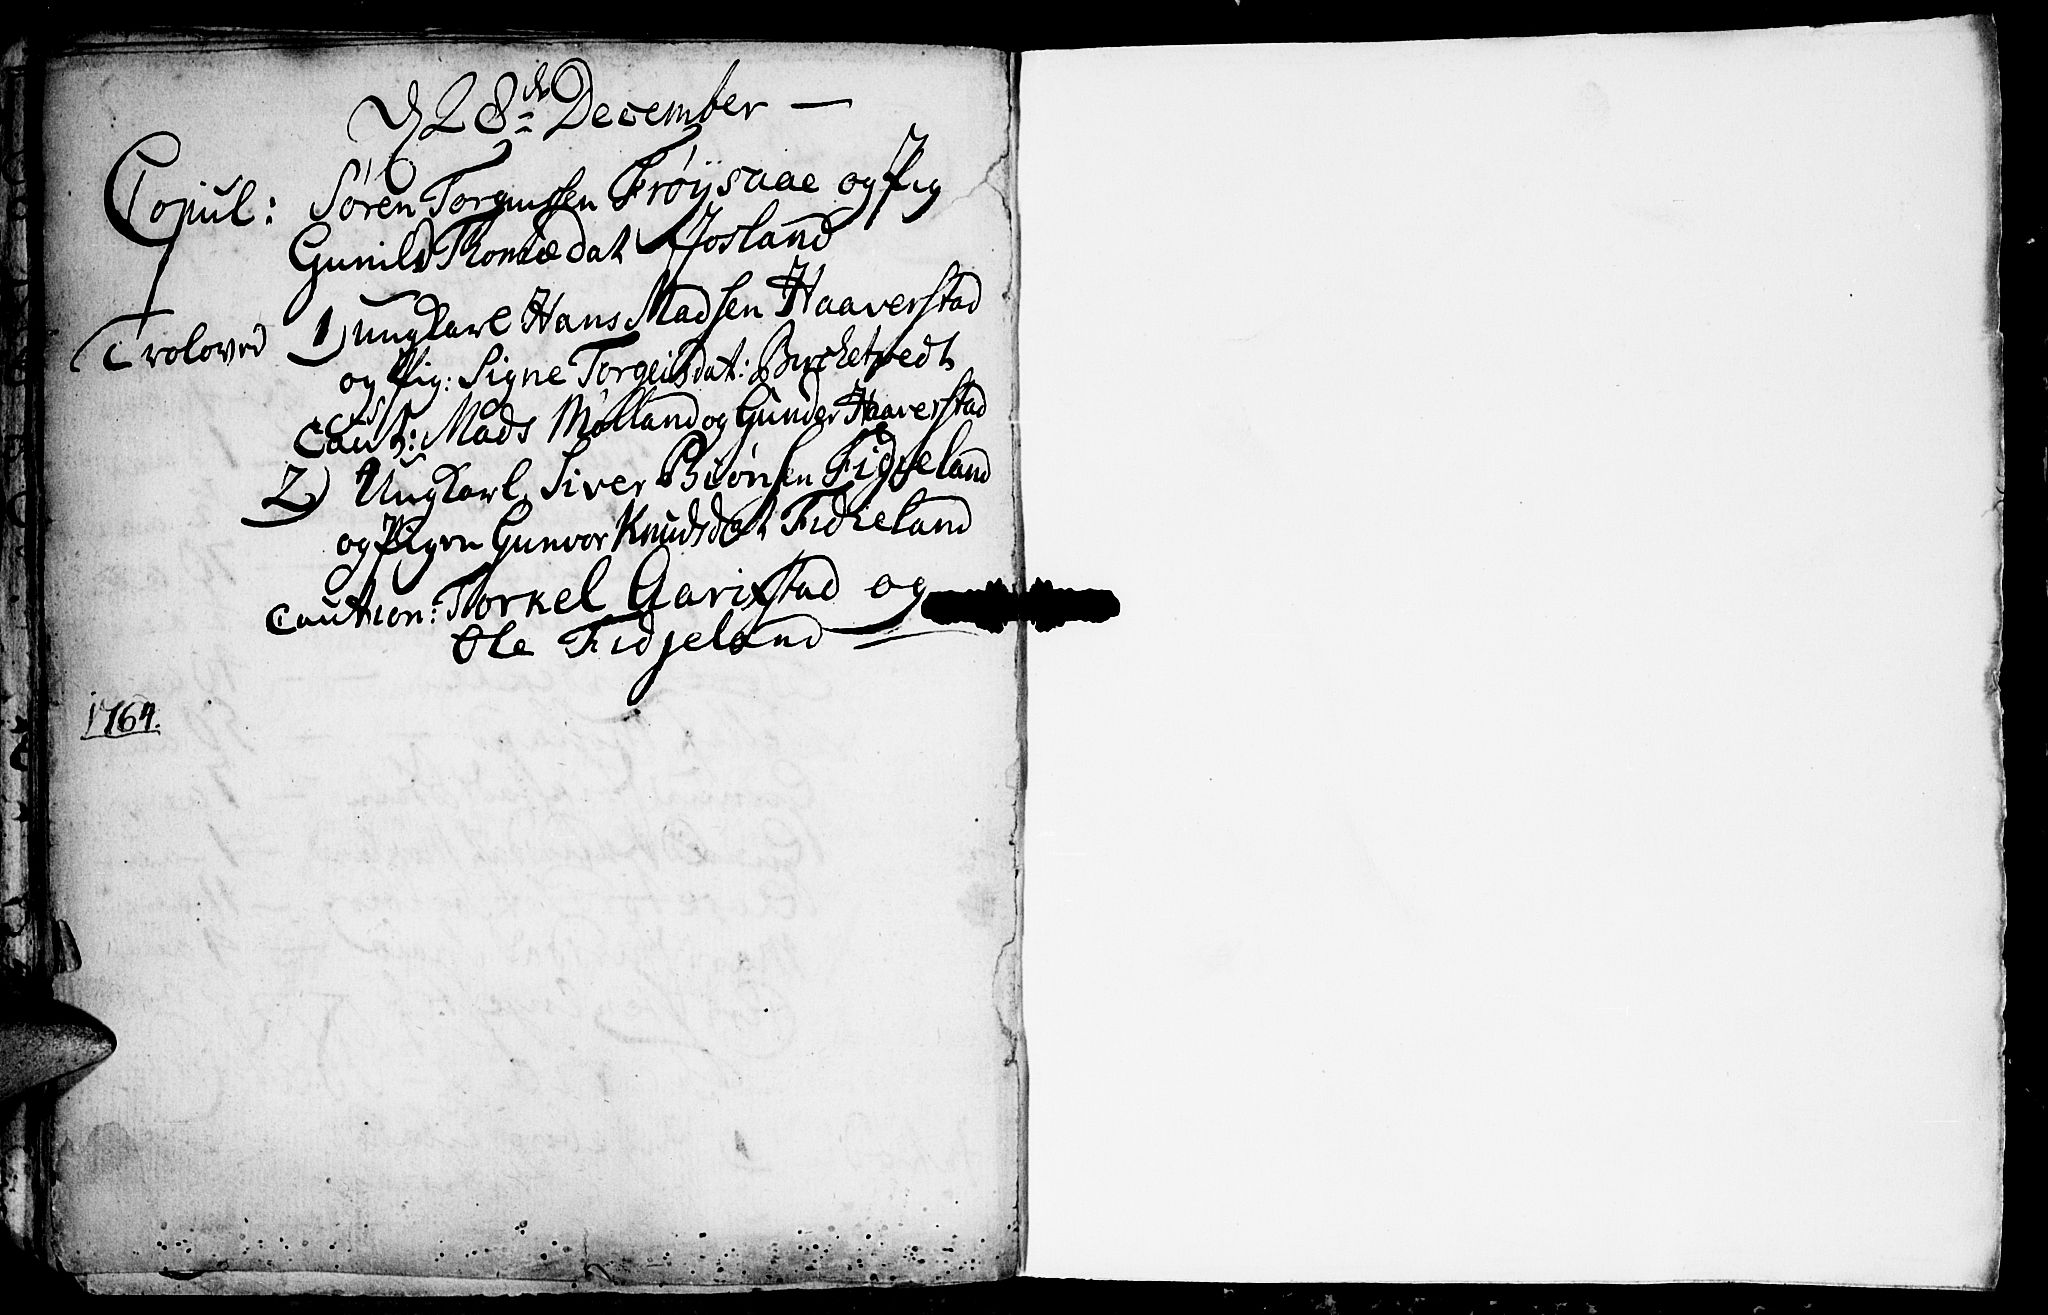 d 28de December —
Copul: Søren Torgiussen Frøysaae og Pig
Gunild Thomædat Josland
Troloved 1) ungkarl Hans Madsen Haaverstad
og Pig: Signe Torgeilsdat: Birketvedt
Caut: Mads Mølland og Gunder Haaverstad
2) Ungkarl Siver Biørnsen Fidjeland
og Pigen Gunvor Knudsdat Fidieland
Caution: Torkel Garixstad og
Ole Fidjeland
1764.